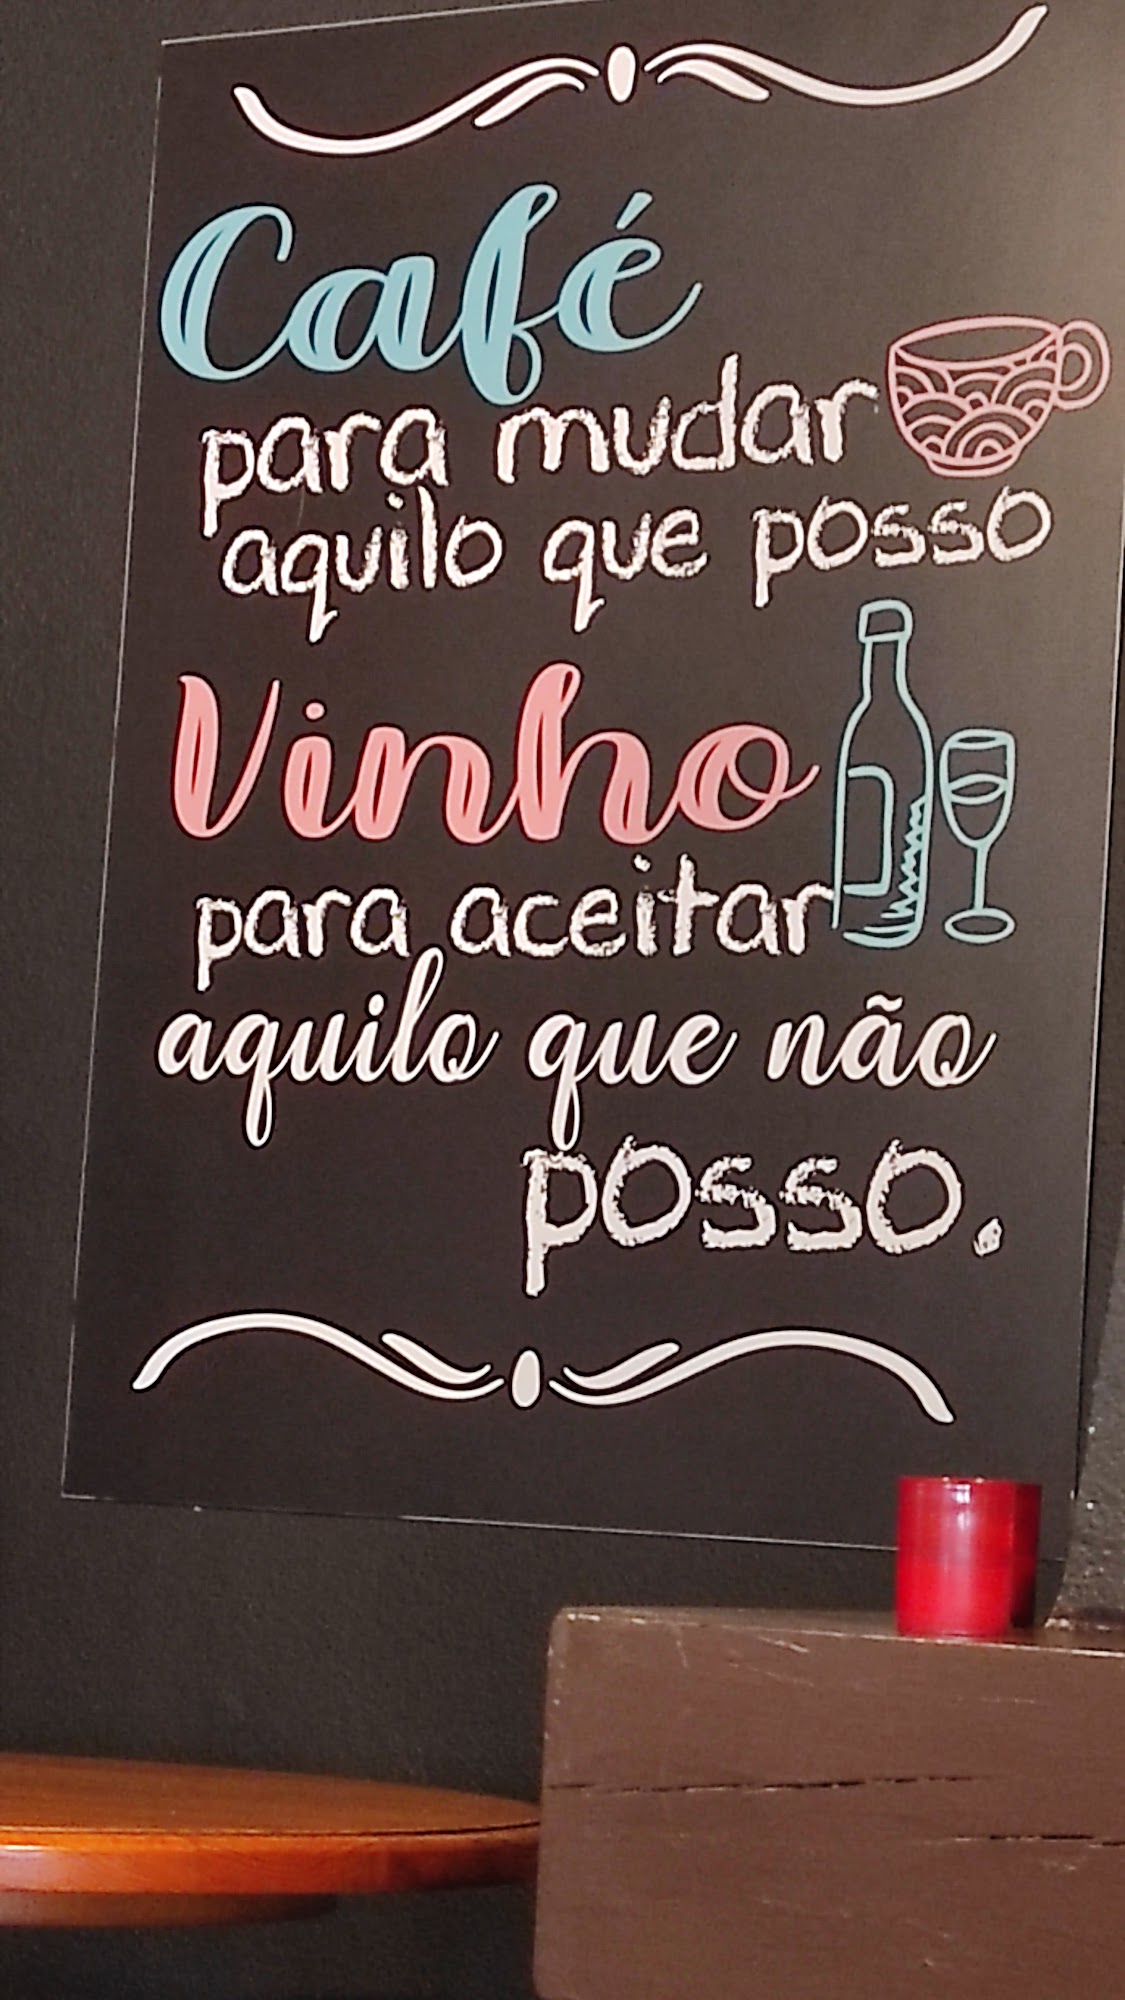 Café
para mudar
aquilo que posso
Vinho
para aceitar
aquilo que não
posso.